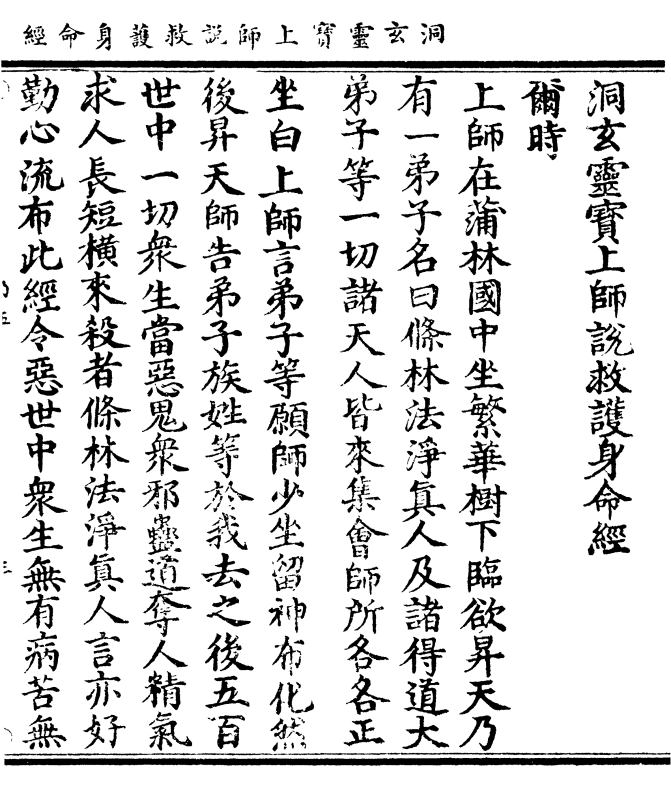 洞玄靈寶上師說救護身命經
洞玄靈寶上師說救護身命經
爾時
上師在蒲林國中坐繁華樹下臨欲昇天乃
有一弟子名曰條林法淨真人及諸得道大
弟子等一切諸天人皆來集會師所各各正
坐白上師言弟子等願師少坐留神布化然
後昇天師告弟子族姓等於我去之後五百
世中一切衆生當惡鬼衆邪蠱道奪人精氣
求人長短橫來殺者條林法淨真人言亦好
勤心流布此經令惡世中衆生無有病苦無